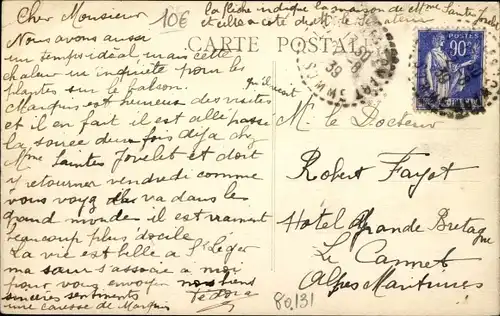 Cher Monsieur
10€
la flèche indique la maison de Mme Saintes Jovelet
et celle à côté de M. le Sénateur
CARTE POSTALE
POSTES
90c
39
Nous avons aussi
un temps idéal mais cette
chaleur m'inquiète pour les
plantes sur le balcon.
Marquis est heureux des visites
qu'il reçoit
et il en fait il est allé passé
la soirée deux fois déjà chez
Mme Saintes Jovelet et doit
y retourner vendredi comme
vous voyez dans le
grand monde il est vraiment
beaucoup plus docile
La vie est belle à St Léger
ma sœur s'associe à moi
pour vous envoyer nos biens
sincères sentiments
Fedora
une caresse de Marquis
M. le Docteur
Robert Fayot
Hotel Grande Bretagne
Le Cannet
Alpes Maritimes
80.131